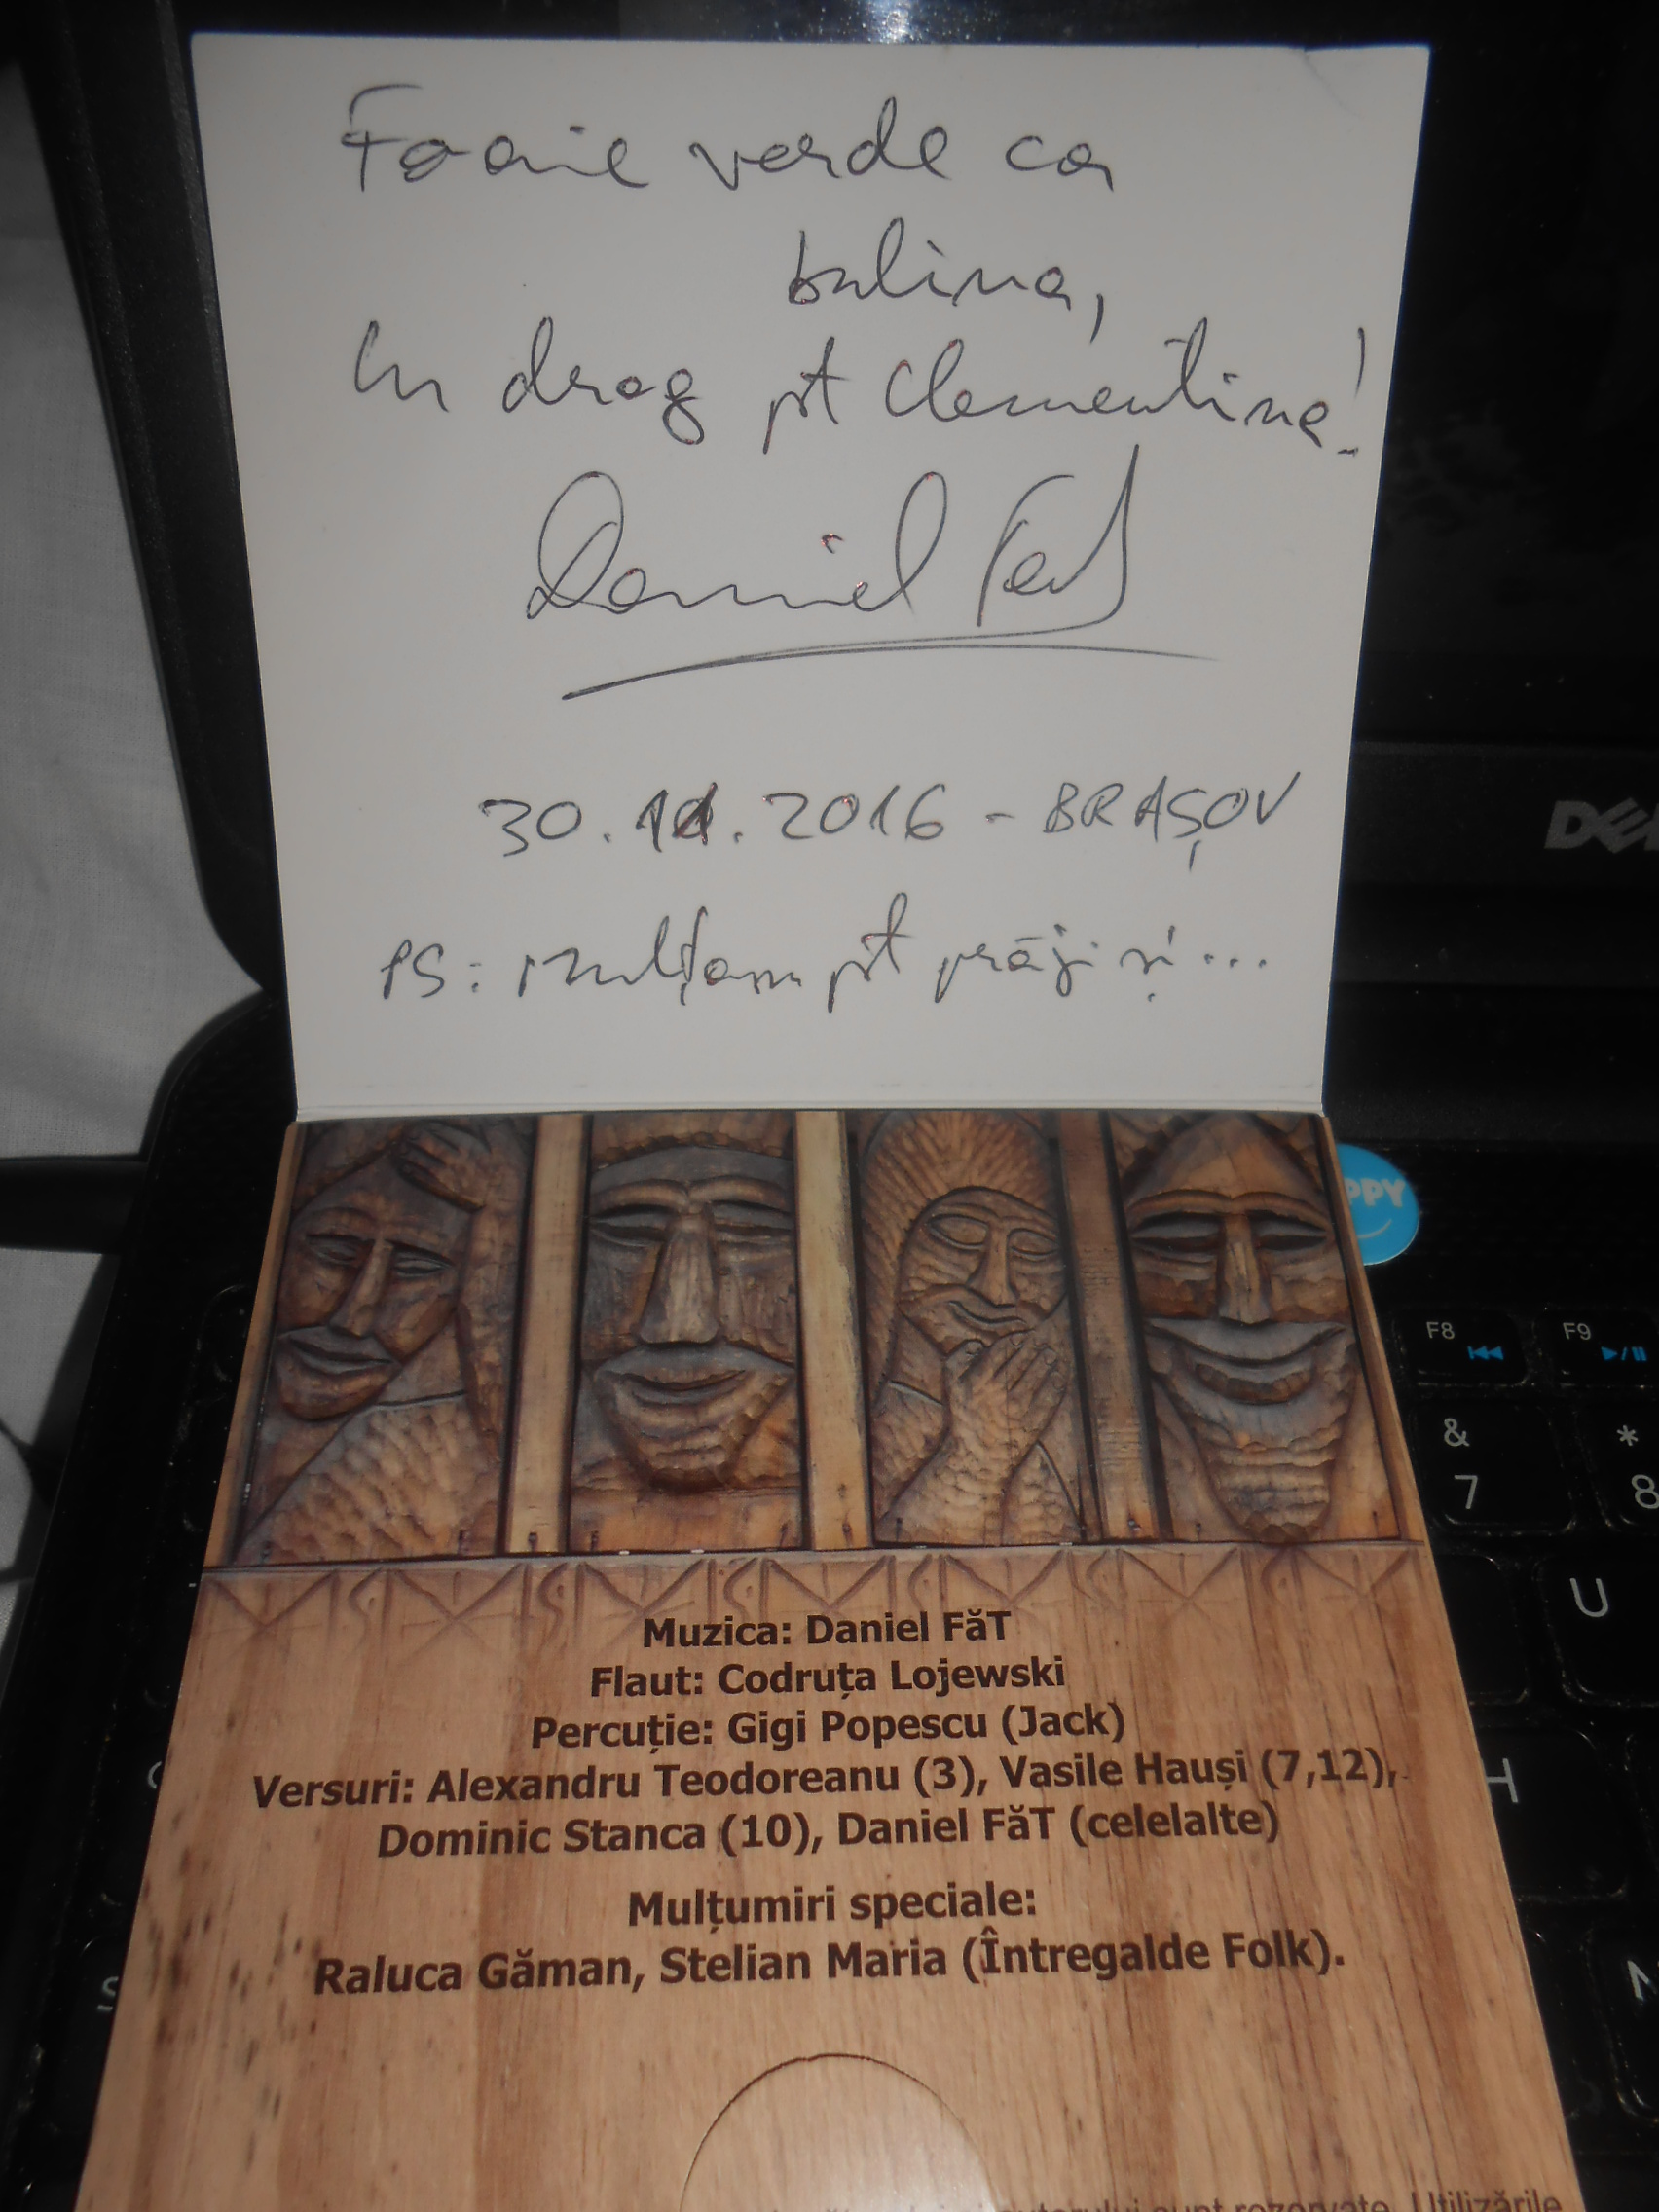 Foaie verde ca
bulina,
Cu drag pt Clementina!
Daniel Făt
30.11.2016 - BRAȘOV
PS: Mulțam pt prăji și ...
DEL
PPY
F8
F9
&
7
*
8
U
H
Muzica: Daniel FăT
Flaut: Codruța Lojewski
Percuție: Gigi Popescu (Jack)
Versuri: Alexandru Teodoreanu (3), Vasile Hauși (7,12),
Dominic Stanca (10), Daniel FăT (celelalte)
Mulțumiri speciale:
Raluca Găman, Stelian Maria (Întregalde Folk).
sunt rezervate. Utilizările